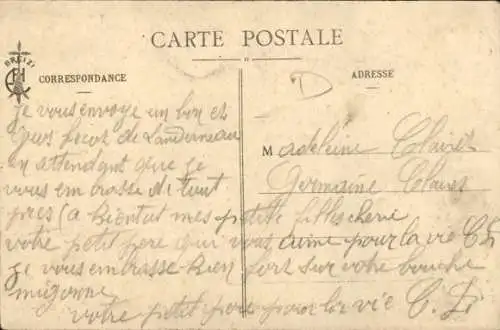 BREIZ
CARTE POSTALE
CORRESPONDANCE
ADRESSE
D
je vous envoye un bon et
gros becot de Landerneau
en attendant que je
vous embrasse de tout
pres (a bientut mes petite filles cherie
votre petit pere qui vous aime pour la vie C
je vous embrasse bien fort sur votre bouche
mignonne
votre petit pere pour la vie C.
M adeleine Claires
Germaine Claires